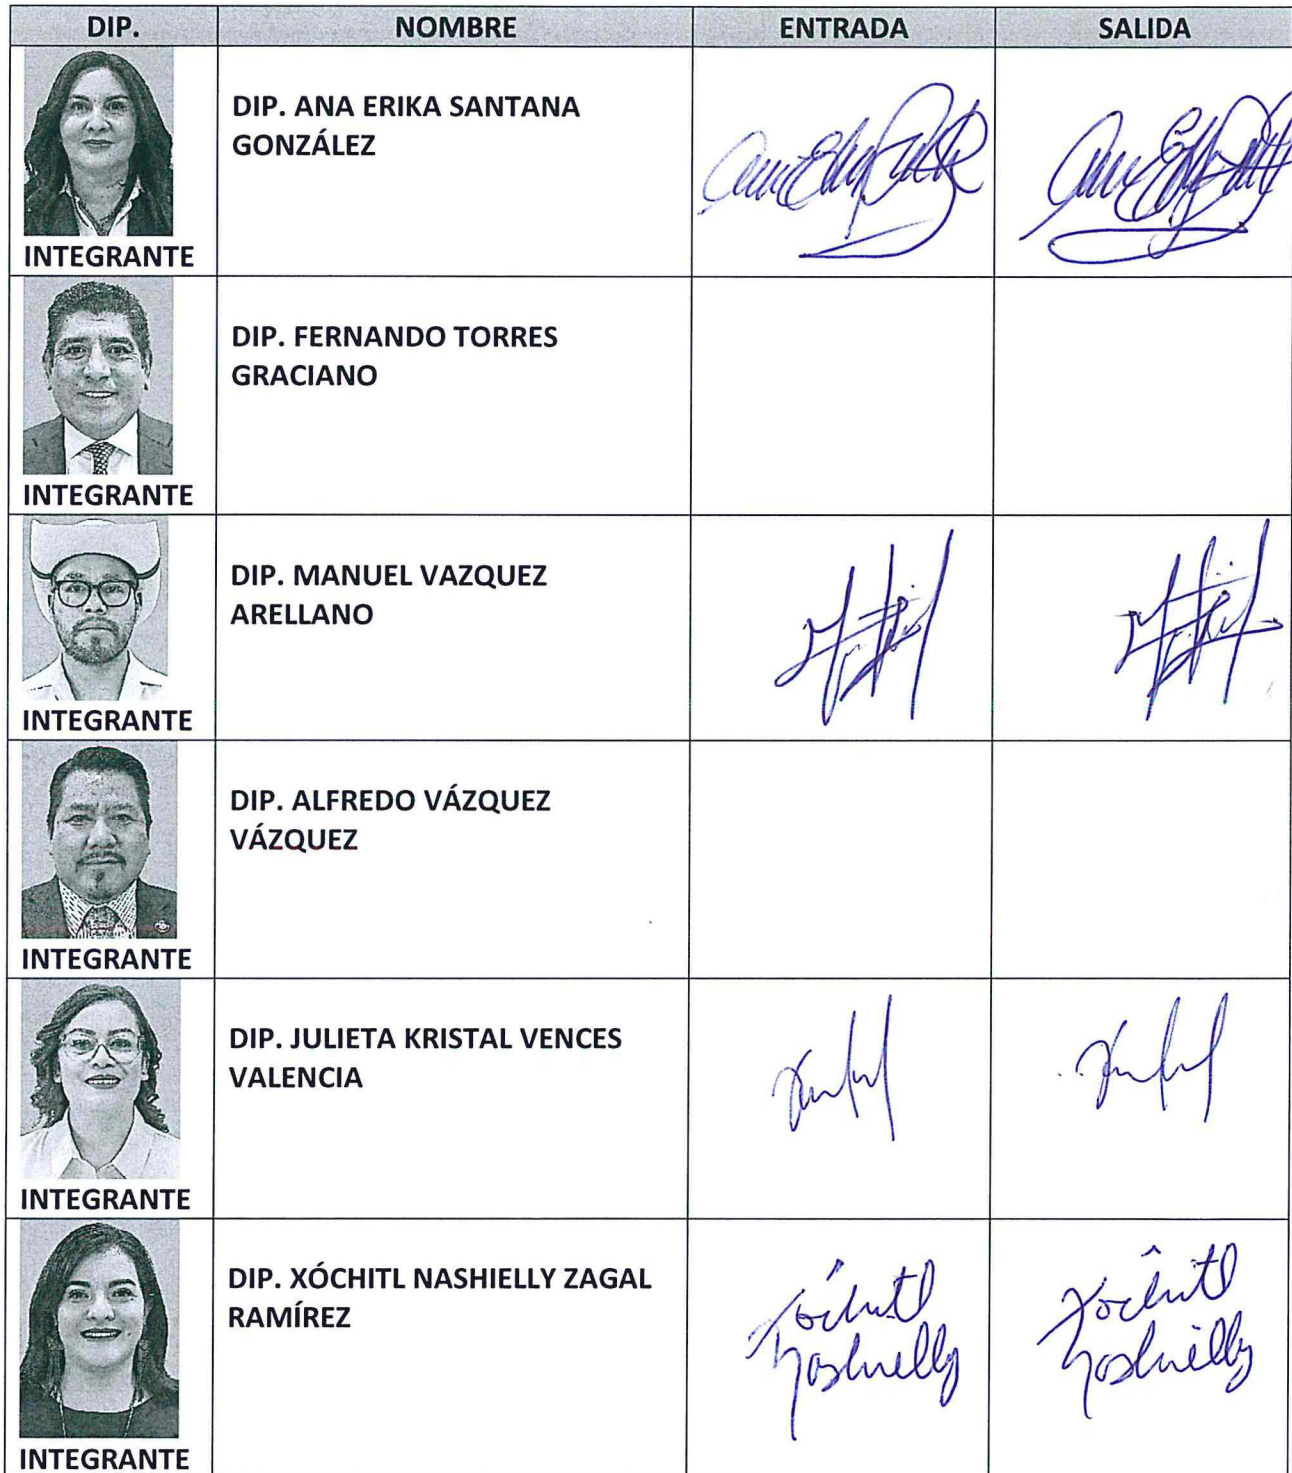 DIP. NOMBRE ENTRADA SALIDA
DIP. ANA ERIKA SANTANA
GONZÁLEZ
INTEGRANTE
DIP. FERNANDO TORRES
GRACIANO
INTEGRANTE
DIP. MANUEL VAZQUEZ
ARELLANO
INTEGRANTE
DIP. ALFREDO VÁZQUEZ
VÁZQUEZ
INTEGRANTE
DIP. JULIETA KRISTAL VENCES
VALENCIA
INTEGRANTE
DIP. XÓCHITL NASHIELLY ZAGAL
RAMÍREZ
Xóchitl Xóchitl
Nashielly Nashielly
INTEGRANTE